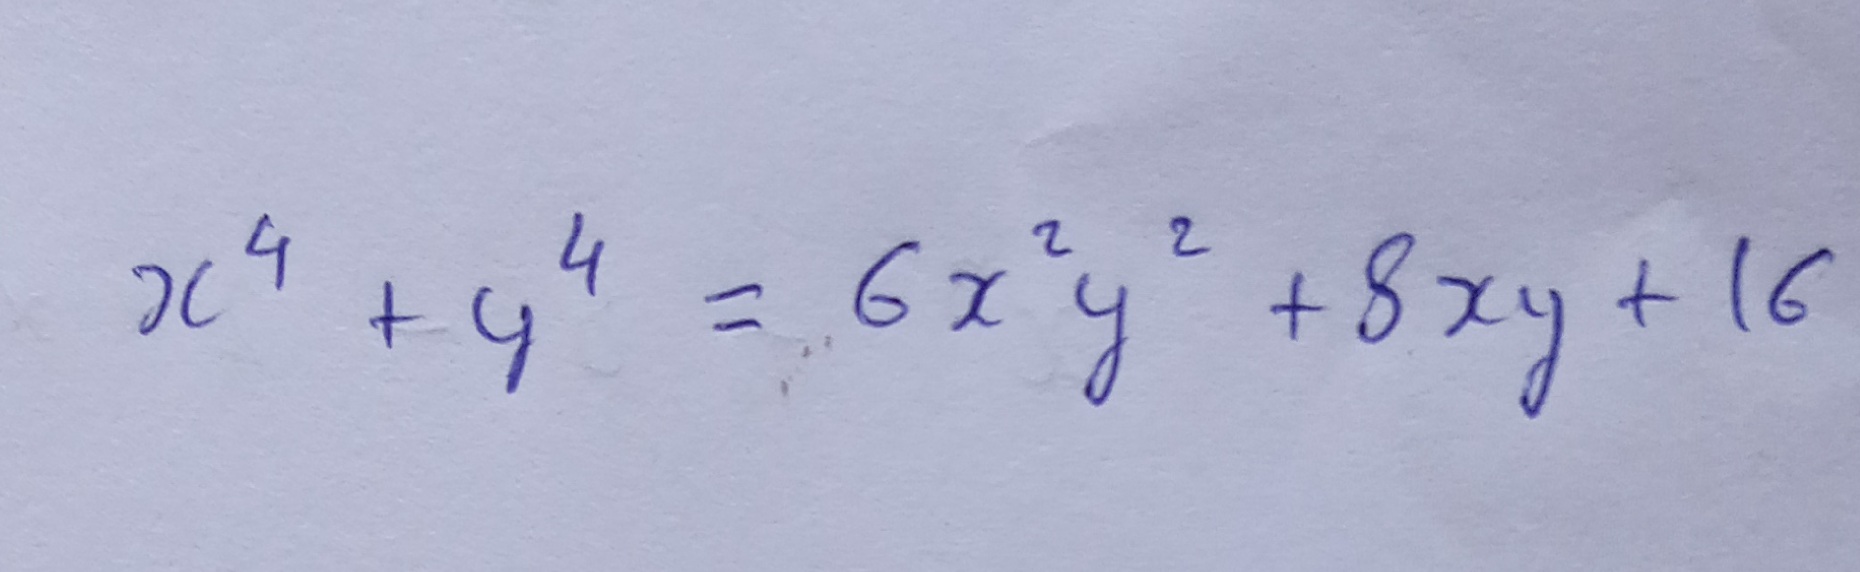 x⁴ + y⁴ = 6x²y² + 8xy + 16